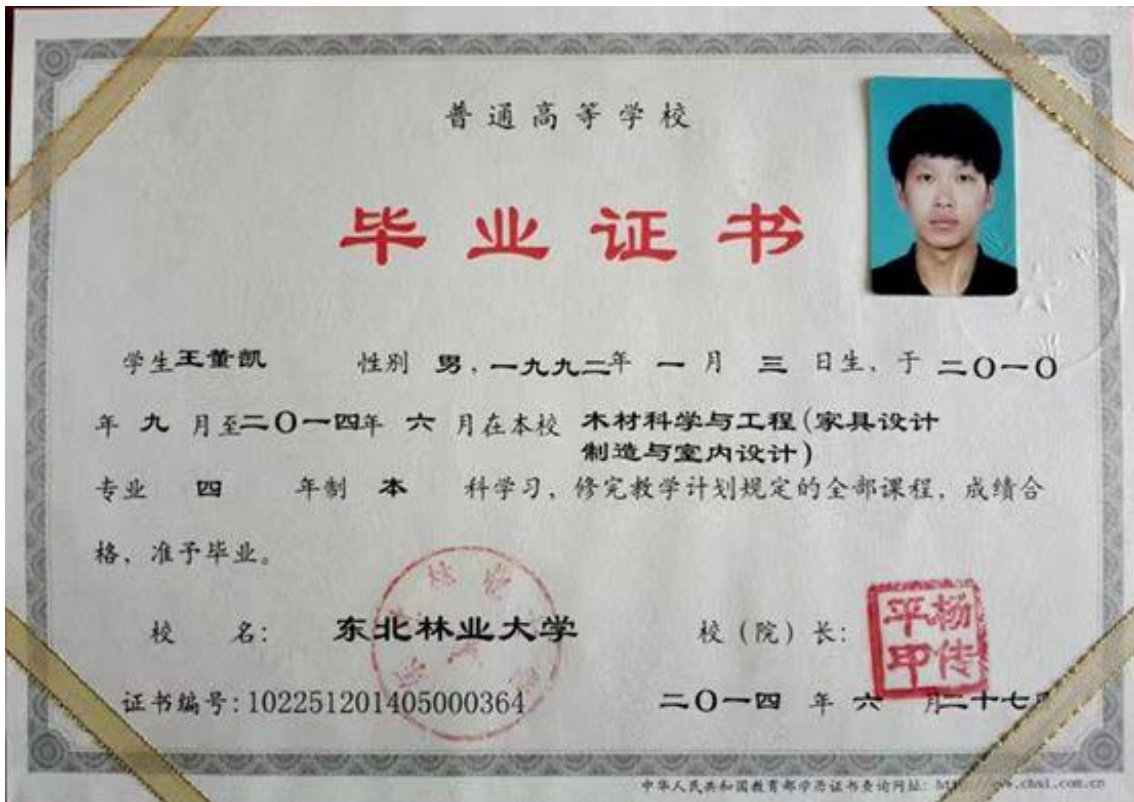 普通高等学校
毕业证书
学生王董凯 性别 男，一九九二年 一 月 三 日生，于 二〇一〇
年 九 月至二〇一四年 六 月在本校 木材科学与工程(家具设计
制造与室内设计)
专业 四 年制 本 科学习，修完教学计划规定的全部课程，成绩合
格，准予毕业。
校 名： 东北林业大学 校（院）长：
杨传平印
证书编号：102251201405000364 二〇一四 年 六 月二十七日
中华人民共和国教育部学历证书查询网址：